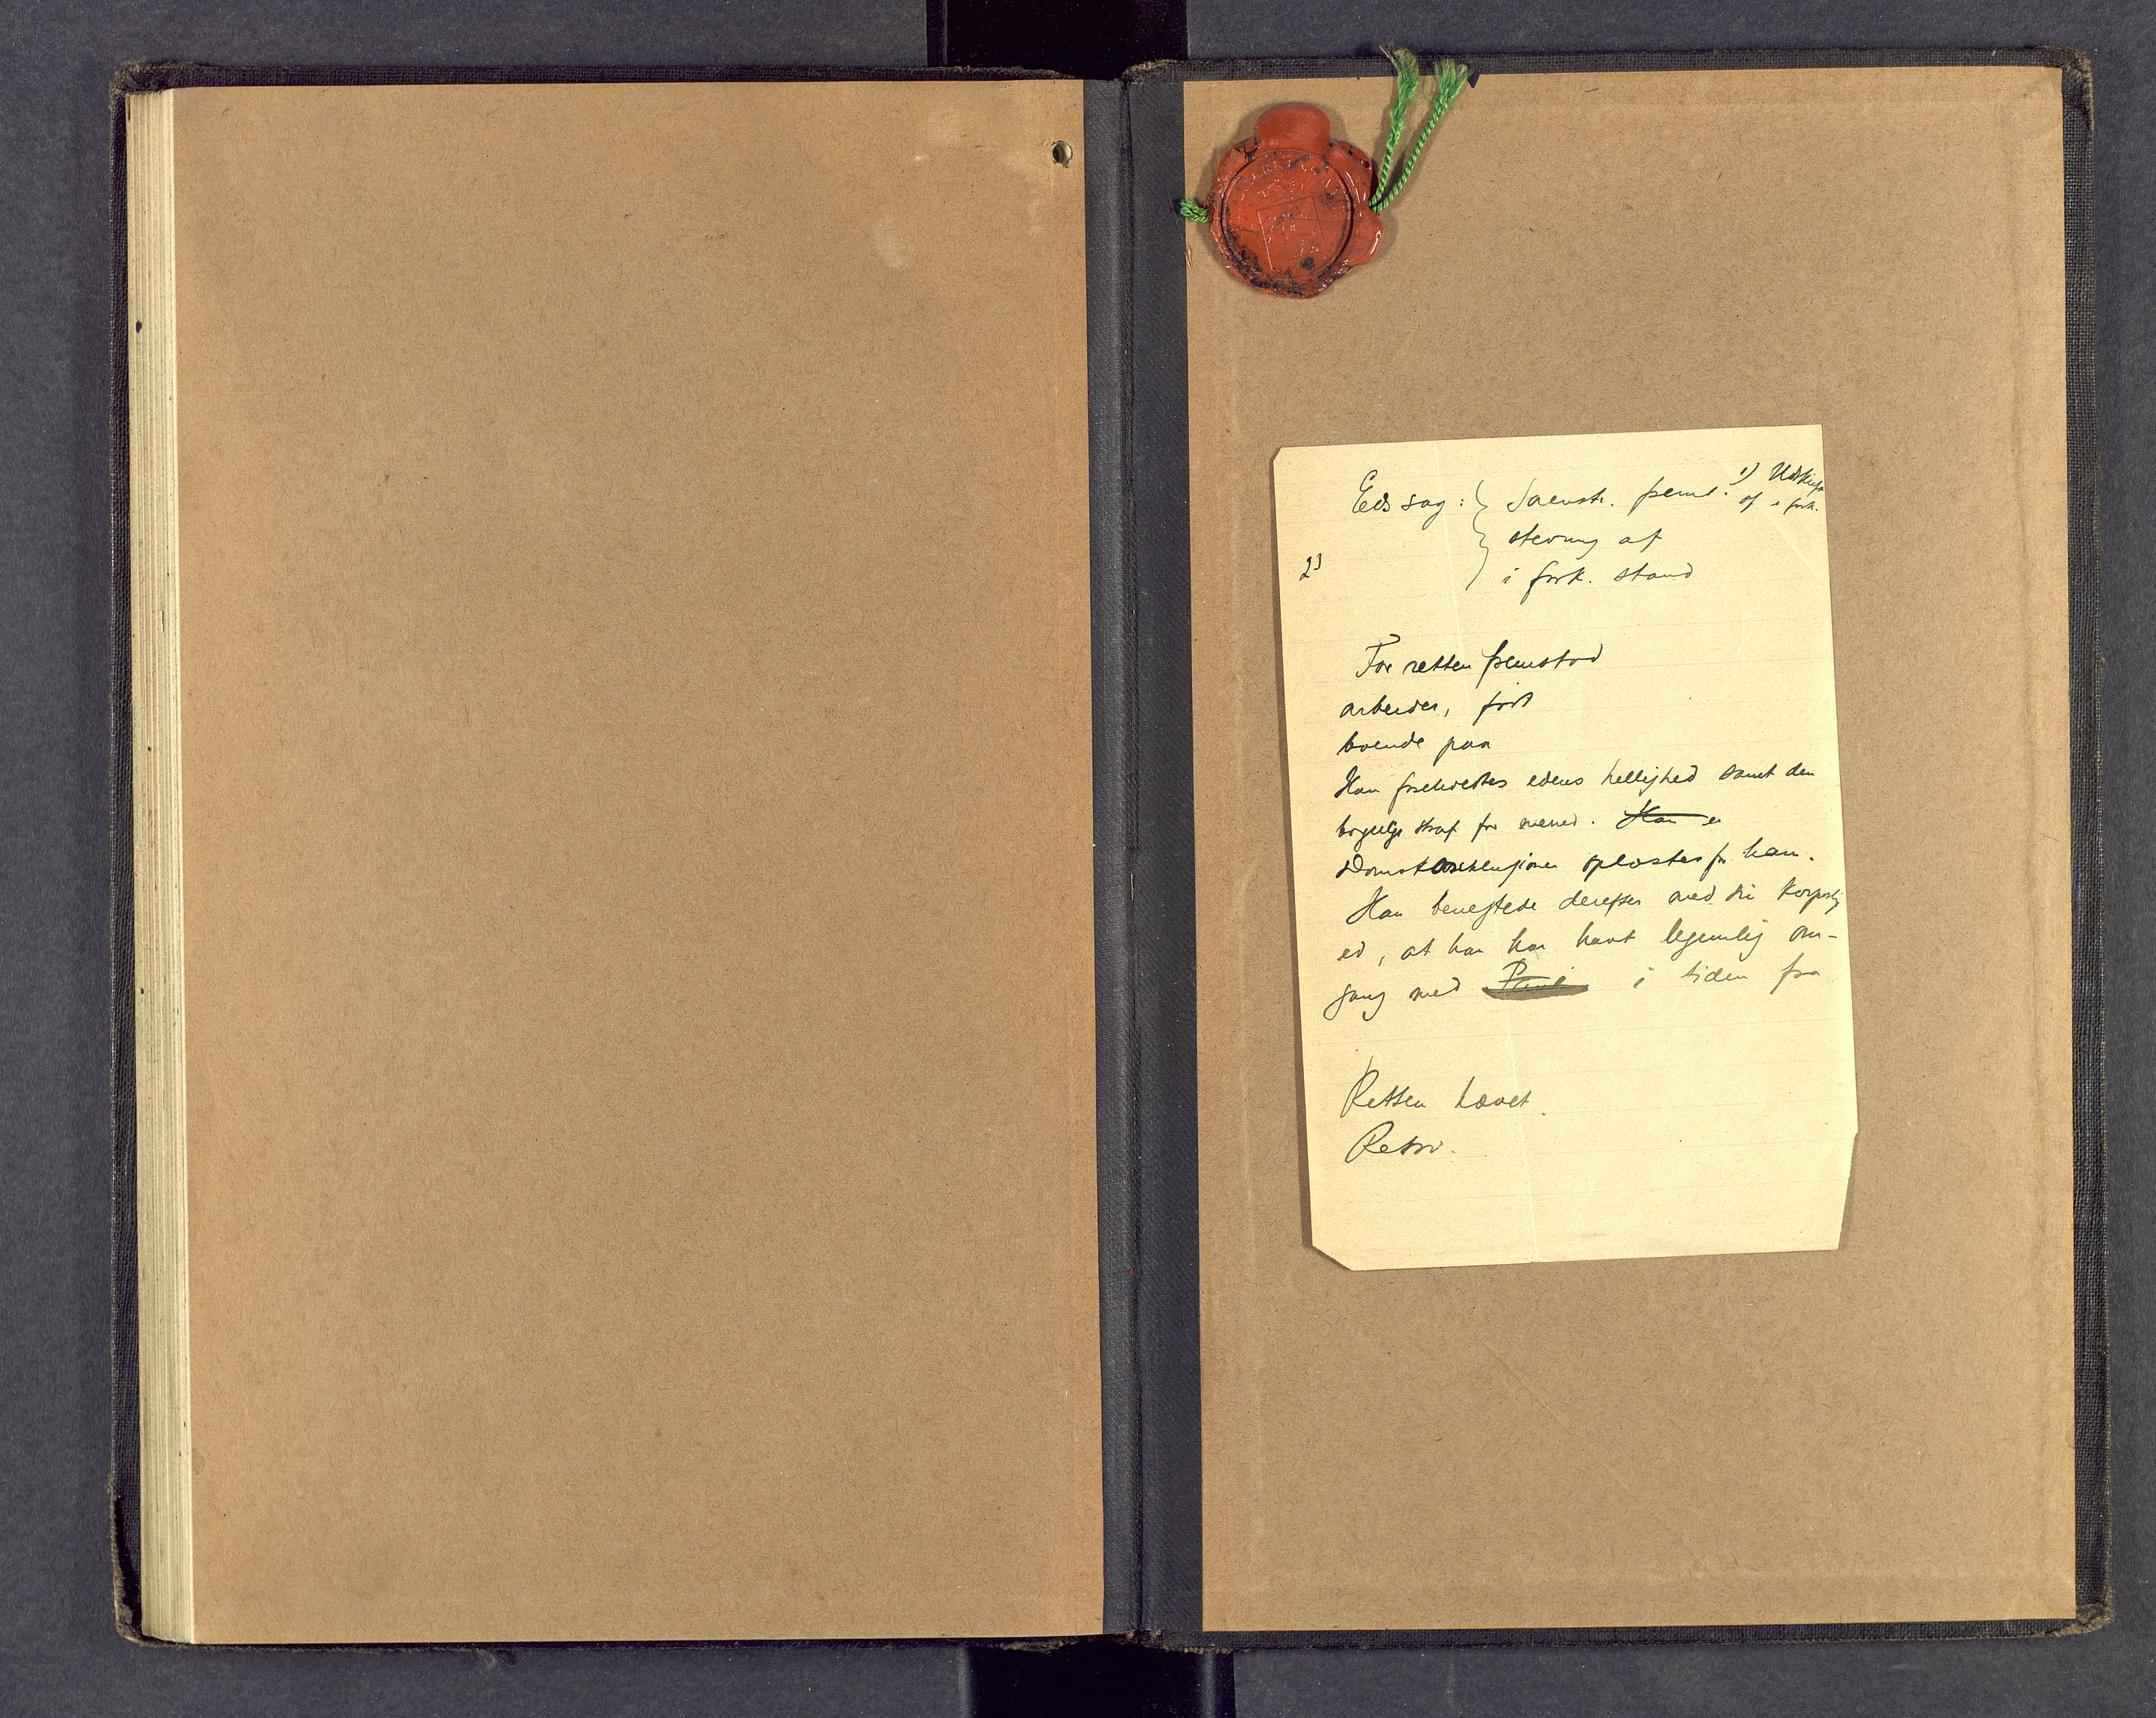 Eds sag: { Saevstr. freml. 1) Udskrift
af i fork.
stevning af
2) i fork. stand
For retten fremstod
arbeider, født
boende paa
Han foreholdtes edens hellighed samt den
borgerlige straf for mened. Han er
Domskonklusjonen oplæstes for ham.
Han benegtede derefter med sin korporlig
ed, at han har havt legemlig om-
gang med i tiden fra
Retten hævet.